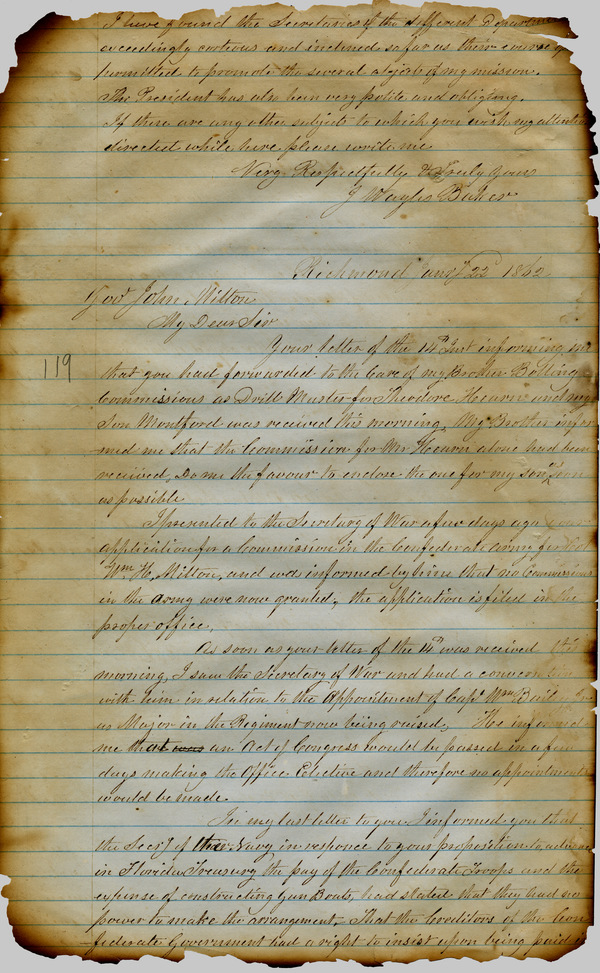 I have found the Secretaries of the different Departme
exceedingly courteous and inclined so far as their course
permitted to promote the several objects of my mission.
The President has also been very polite and obliging.
If there are any other subjects to which you wish my attention
directed while here please write me
Very Respectfully & Truly Yours
J Wayles Baker
Richmond Jany 22d 1862
Govr John Milton
My Dear Sir
119
Your letter of the 14th Inst informing me
that you had forwarded to the Care of my Brother Bolling
Commissions as Drill Master for Theodore Hearn and my
Son Montford was received this morning. My Brother infor
med me that the Commission for Mr Hearn alone had been
received, Do me the favour to enclose the one for my son soon
as possible
I presented to the Secretary of War a few days ago your
application for a Commission in the Confederate army for
Wm H. Milton, and was informed by him that no Commissions
in the army were now granted, the application is filed in the
proper office.
As soon as your letter of the 14th was received this
morning, I saw the Secretary of War and had a conversation
with him in relation to the appointment of Capt Wm
as Major in the Regiment now being raised, He informed
me that was an Act of Congress would be passed in a few
days making the Office Elective and therefore no appointments
would be made.
In my last letter to you I informed you that
the Secy of the Navy in responce to your proposition to advance
in Florida Treasury the pay of the Confederate Troops and the
expense of constructing Gun Boats, had stated that they had no
power to make the arrangement, That the Creditors of the Con
federate Government had a right to insist upon being paid